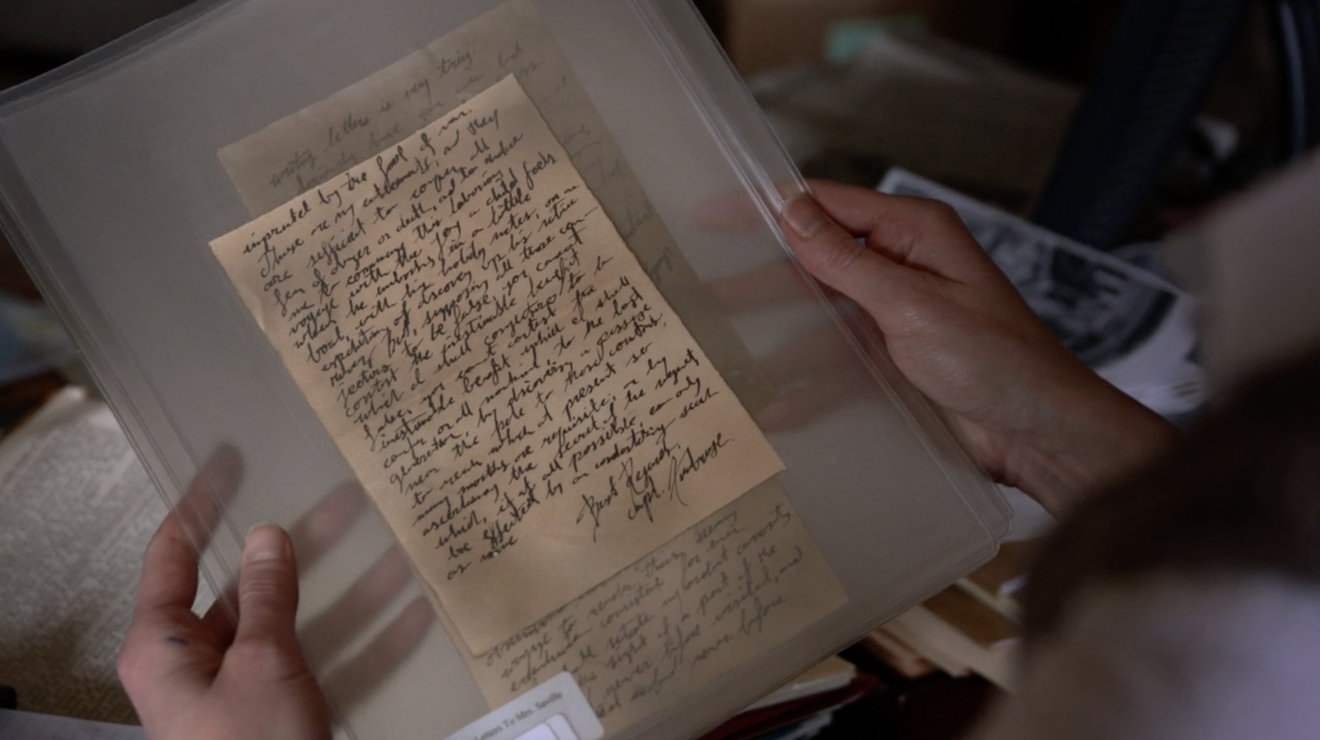 writing letters is very tiring
imprinted by the foot of man.
These are my enticements, and they
are sufficient to conquer all
fear of danger or death, and to induce
me to commence this laborious
voyage with the joy a child feels
when he embarks in a little
boat, with his holiday mates, on an
expedition of discovery up his native
river. But, supposing all these con-
jectures to be false, you cannot
contest the inestimable benefit
which I shall conjectures to be
false, you cannot contest the
inestimable benefit which I shall
confer on all mankind, to the last
generation, by discovering a passage
near the pole to those countries,
to reach which at present so
many months are requisite; or by
ascertaining the secret of the magnet
which, if at all possible, can only
be effected by an undertaking such
as mine.
Best Regards
Capt.
voyage to render these seeming
consistent for ever.
shall satiate my ardent curiosity
sight of a part of the
never before visited, and
never before
Letters To Mrs. Saville